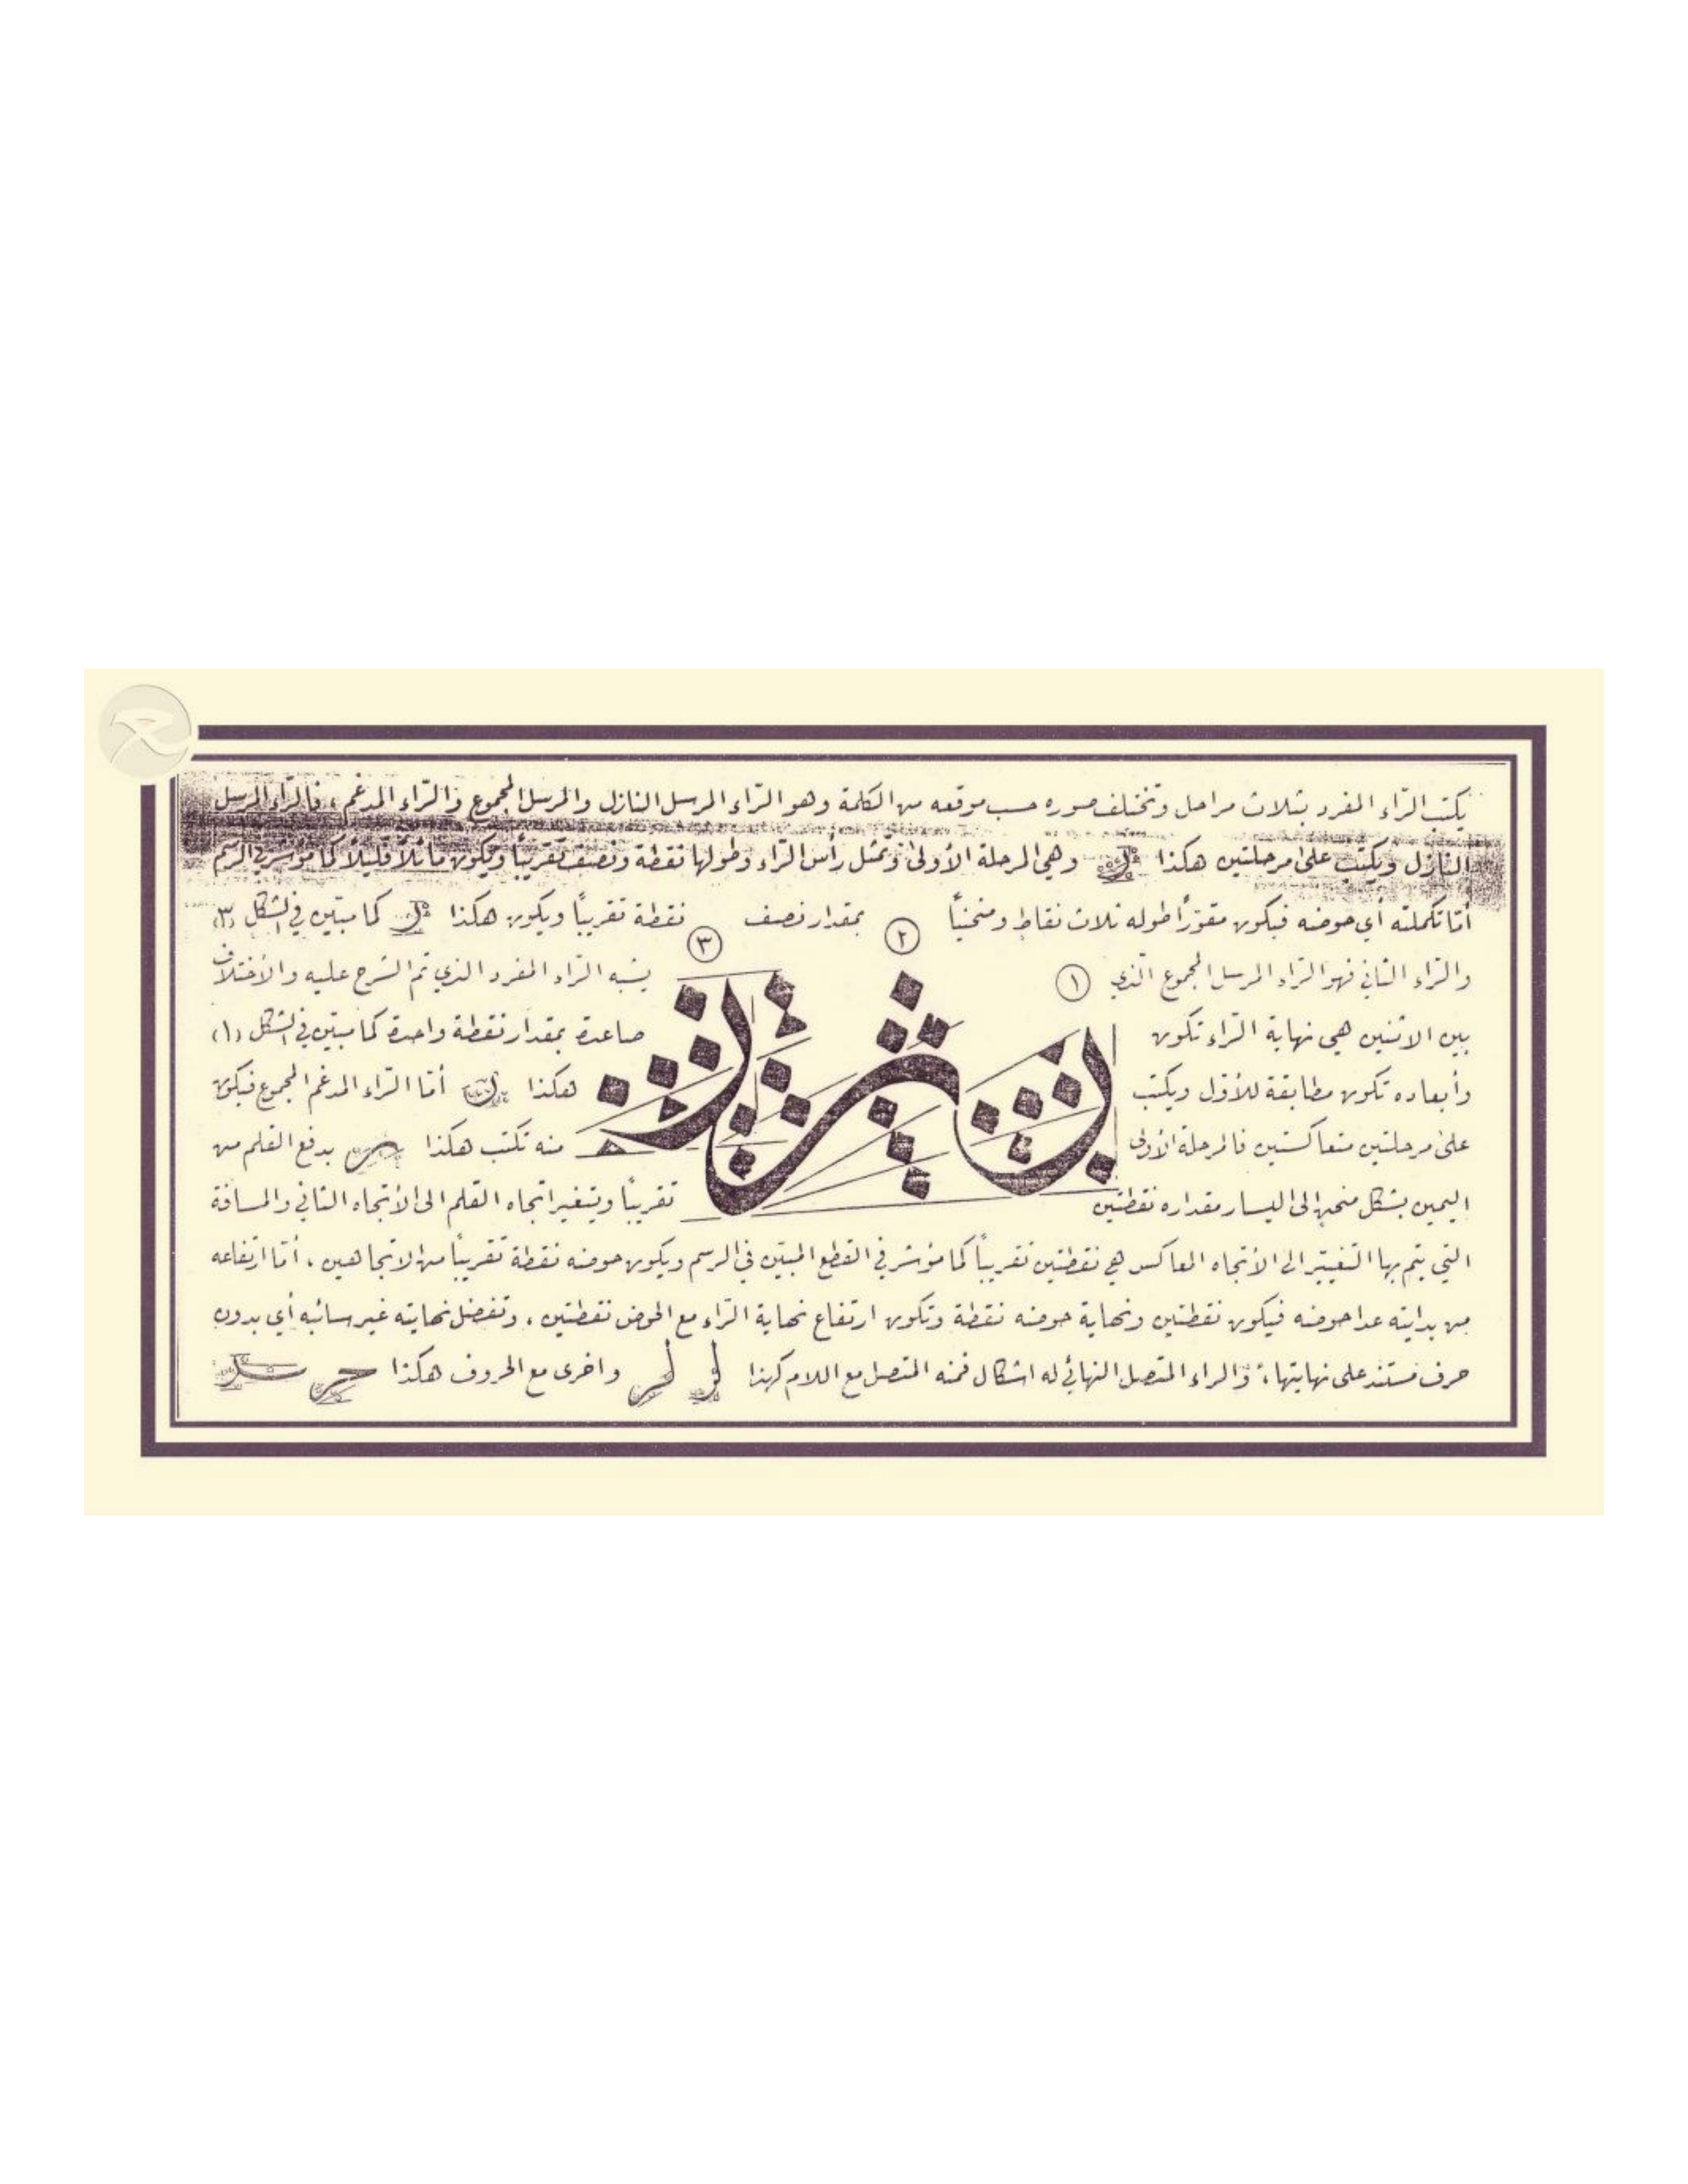 يكتب الرّاء المفرد بثلاث مراحل وتختلف صوره حسب موقعه من الكلمة وهو الرّاء المرسل النازل والمرسل المجموع والرّاء المدغم، فالرّاء المرسل
النازل ويكتب على مرحلتين هكذا وهي المرحلة الأولى وتمثل رأس الراء وطولها نقطة ونصف تقريباً ويكون مائلاً قليلاً كما مؤشر في الرسم
أمّا تكملته أي حوضه فيكون مقوّراً طوله ثلاث نقاط ومنحنياً ٢ بمقدار نصف ٣ نقطة تقريباً ويكون هكذا كما مبيّن في الشكل (٣)
والرّاء الثاني فهو الرّاء المرسل المجموع الذي ١ يشبه الرّاء المفرد الذي تم الشرح عليه والأختلاف
بين الاثنين هي نهاية الرّاء تكون صاعدة بمقدار نقطة واحدة كما مبيّن في الشكل (١)
وأبعاده تكون مطابقة للأوّل ويكتب هكذا أمّا الرّاء المدغم المجموع فيكون
على مرحلتين متعاكستين فالمرحلة الأولى منه تكتب هكذا بدفع القلم من
اليمين بشكل منحنٍ إلى اليسار مقداره نقطتين تقريباً ويتغير اتجاه القلم الى الأتجاه الثاني والمسافة
التي يتم بها التغيير الى الأتجاه المعاكس هي نقطتين تقريباً كما مؤشر في القطع المبيّن في الرسم ويكون حوضه نقطة تقريباً من الاتجاهين، أمّا ارتفاعه
من بدايته عدا حوضه فيكون نقطتين ونهاية حوضه نقطة وتكون ارتفاع نهاية الرّاء مع الحوض نقطتين، وتفضل نهايته غير سائبه أي بدون
حرف مستند على نهايتها، والراء المتصل النهائي له اشكال فمنه المتصل مع اللام كهذا لر لر واخرى مع الحروف هكذا حر